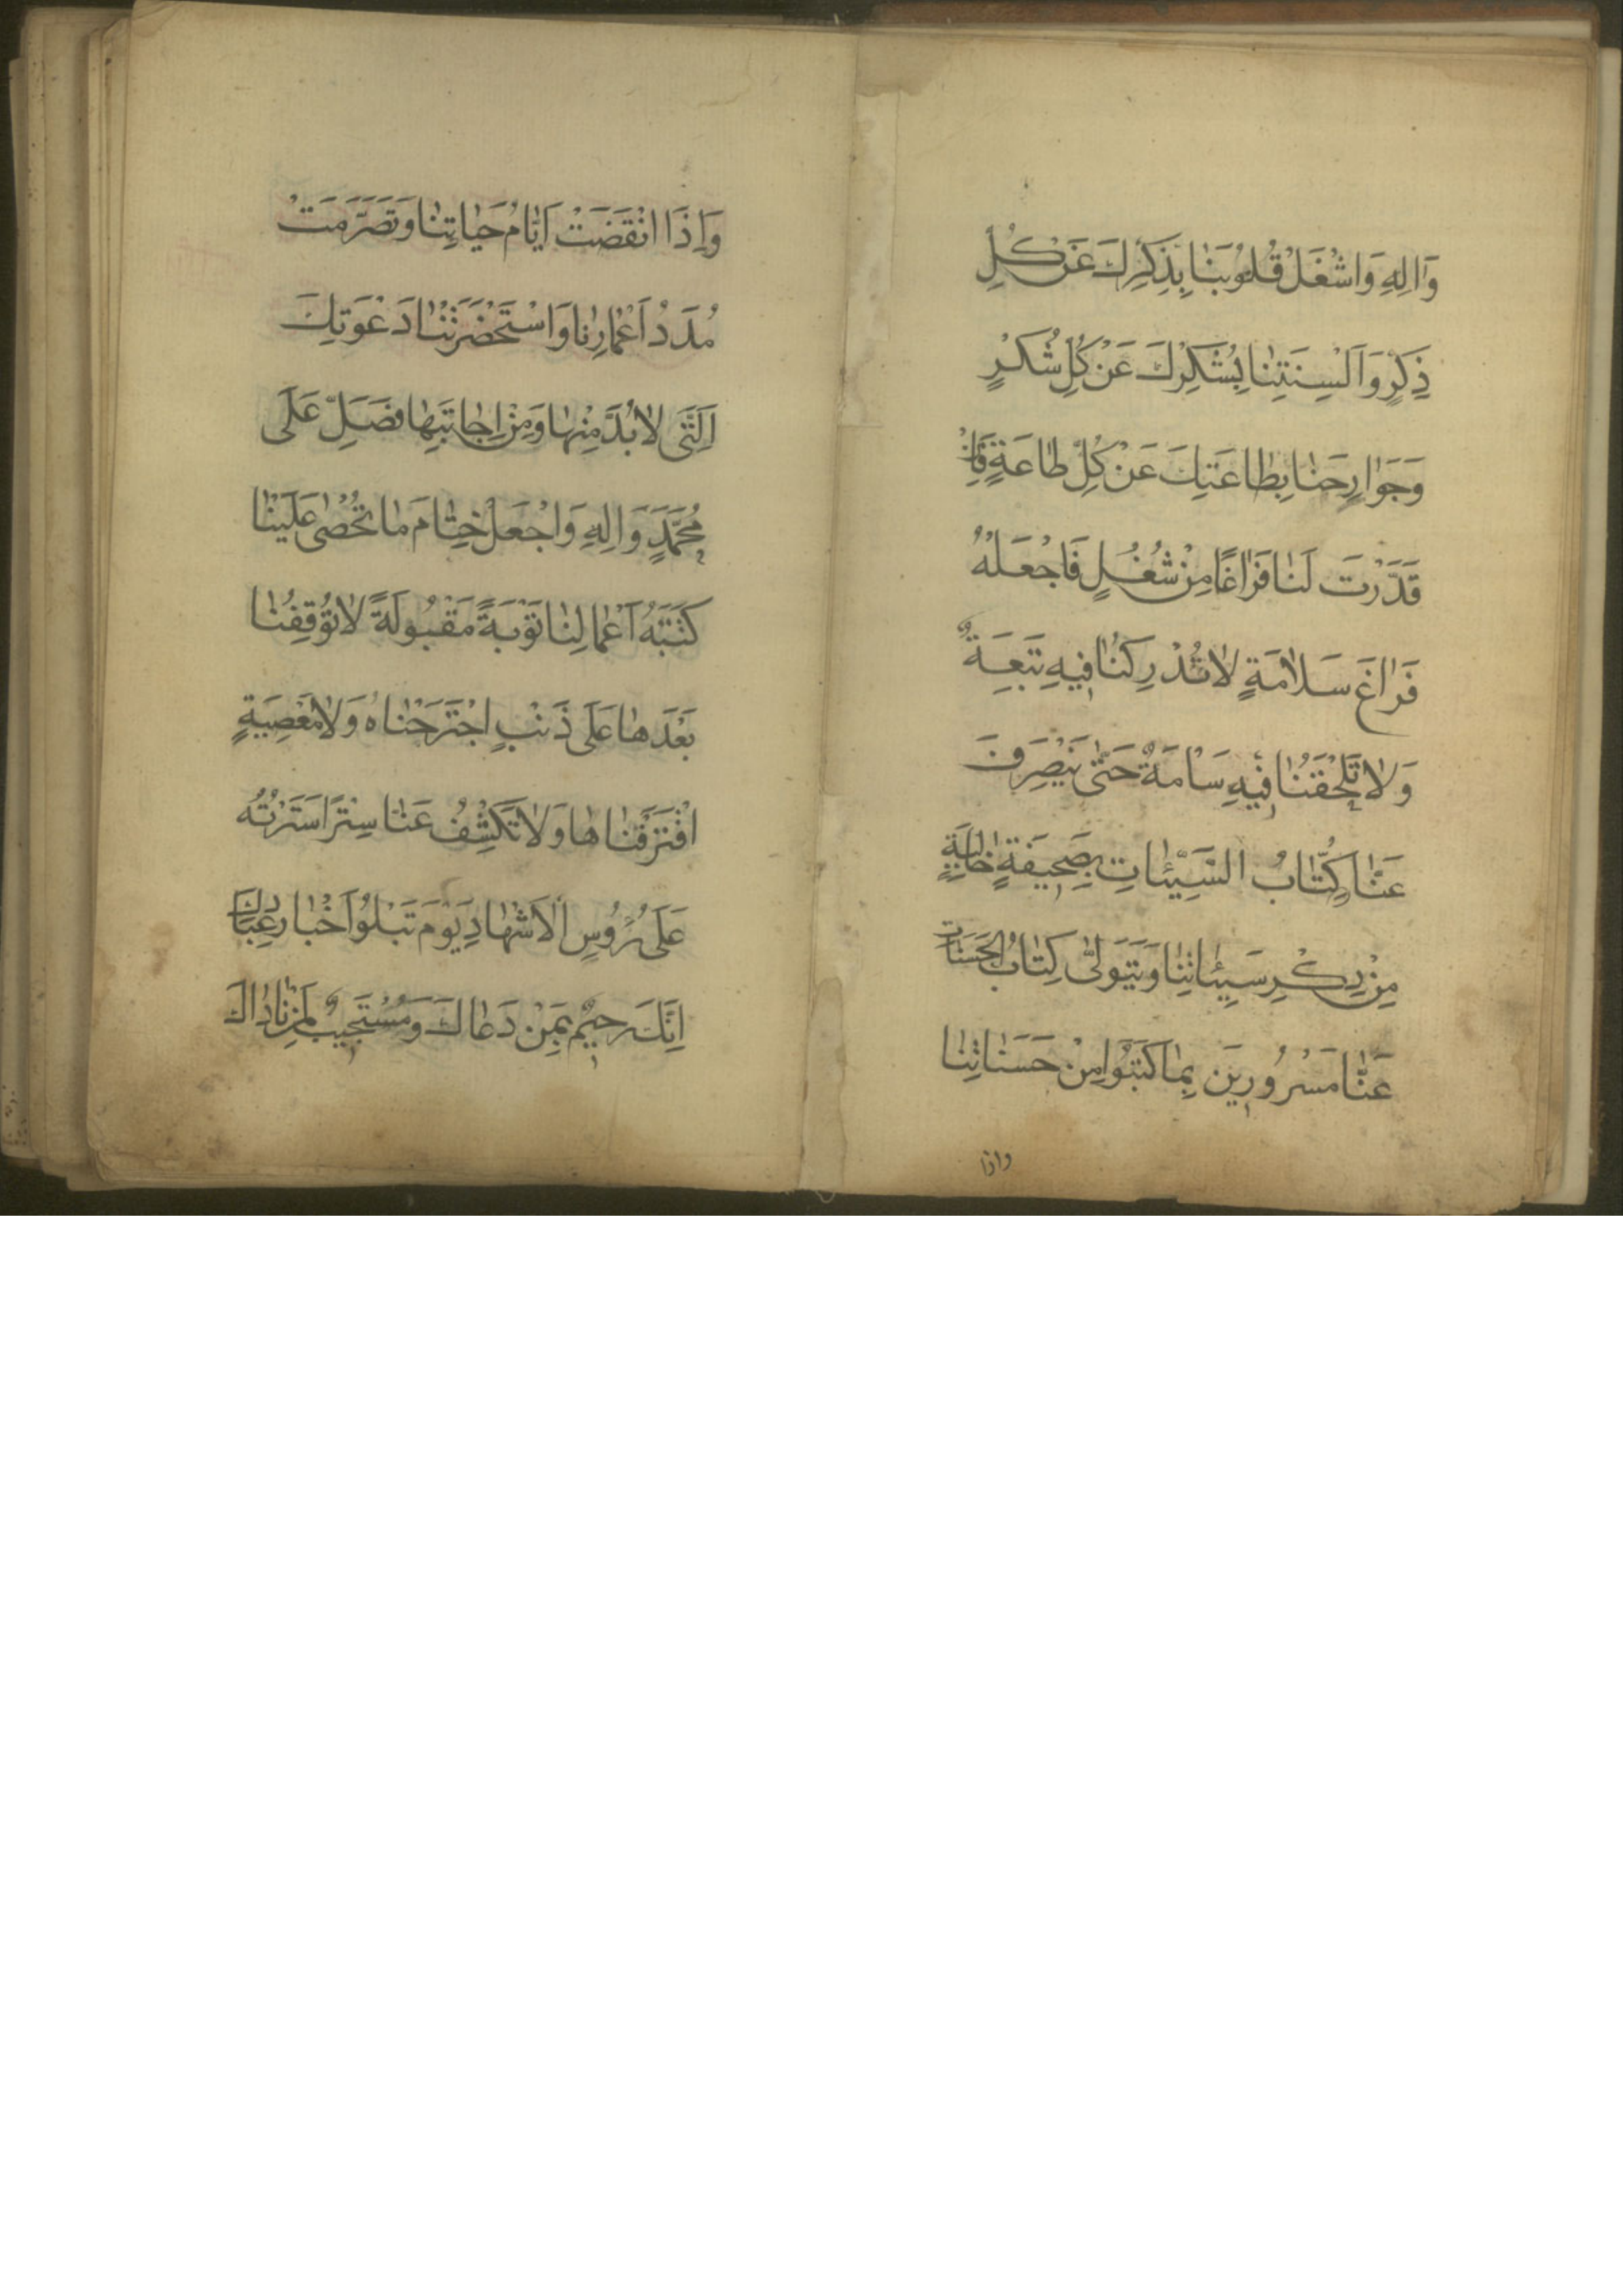 وَاٰلِهِ وَاشْغَلْ قُلُوبَنٰا بِذِكْرِكَ عَنْ كُلِّ
ذِكْرٍ وَاَلْسِنَتِنٰا بِشُكْرِكَ عَنْ كُلِّ شُكْرٍ
وَجَوٰارِحَنٰا بِطٰاعَتِكَ عَنْ كُلِّ طٰاعَةٍ فَاِنْ
قَدَّرْتَ لَنٰا فَرٰاغًا مِنْ شُغُلٍ فَاجْعَلْهُ
فَرٰاغَ سَلاٰمَةٍ لاٰ تُدْرِكُنٰا فِيهِ تَبِعَةٌ
وَلاٰ تَلْحَقُنٰا فِيْهِ سَاْمَةٌ حَتّٰى يَنْصَرِفَ
عَنّٰا كُتّٰابُ السَّيِّئٰاتِ بِصَحِيفَةٍ خٰالِيَةٍ
مِنْ ذِكْرِ سَيِّئٰاتِنٰا وَيَتَوَلّٰى كِتٰابُ الْحَسَنٰاتِ
عَنّٰا مَسْرُورِينَ بِمٰا كَتَبُوا مِنْ حَسَنٰاتِنٰا
واذا
وَاِذَا انْقَضَتْ اَيّٰامُ حَيٰاتِنٰا وَتَصَرَّمَتْ
مُدَدُ اَعْمٰارِنٰا وَاسْتَحْضَرَتْنٰا دَعْوَتِكَ
اَلَّتَى لاٰ بُدَّ مِنْهٰا وَمِنْ اِجٰابَتِهٰا فَصَلِّ عَلَى
مُحَمَّدٍ وَاٰلِهِ وَاجْعَلْ خِتٰامَ مٰا تُحْصٰى عَلَيْنٰا
كَتَبَةُ اَعْمٰالِنٰا تَوْبَةً مَقْبُولَةً لاٰ تُوقِفُنٰا
بَعْدَهٰا عَلَى ذَنْبٍ اجْتَرَحْنٰاهُ وَلاٰ مَعْصِيَةٍ
اقْتَرَفْنٰاهٰا وَلاٰ تَكْشِفُ عَنّٰا سِتْرًا سَتَرْتَهُ
عَلَى رُؤُسِ الْاَشْهٰادِ يَوْمَ تَبْلُوُ اَخْبٰارَ عِبٰادِكَ
اِنَّكَ رَحِيمٌ بِمَنْ دَعٰاكَ وَمُسْتَجِيبٌ لِمَنْ نٰادٰاكَ